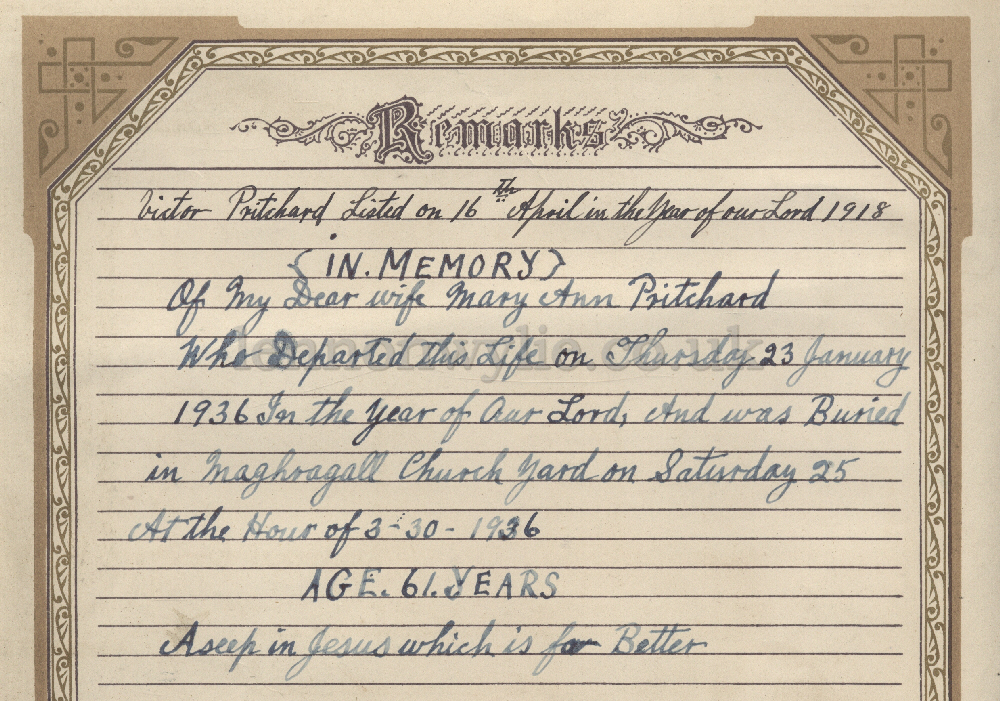 Remarks
Victor Pritchard Listed on 16th April in the Year of our Lord 1918
{IN. MEMORY}
Of My Dear wife Mary Ann Pritchard
Who Departed this Life on Thursday 23 January
1936 In the Year of Our Lord, And was Buried
in Maghragall Church Yard on Saturday 25
At the Hour of 3-30- 1936
AGE. 61. YEARS
Aseep in Jesus which is far Better